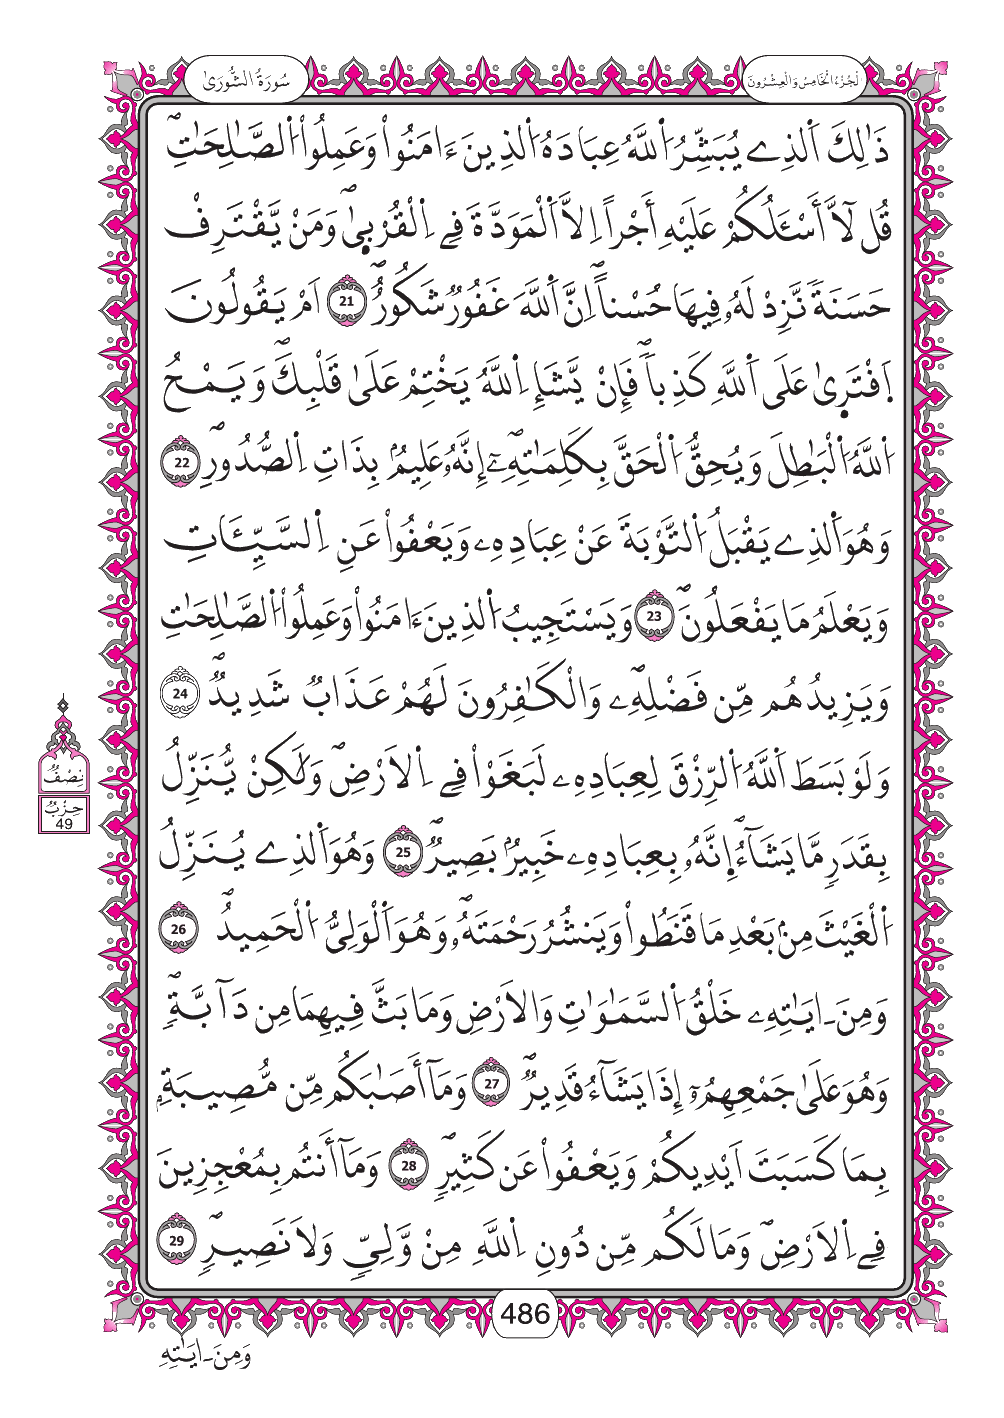 سُورَةُ الشُّورَىٰ
اَلْجُزْءُ الْخَامِسُ وَالْعِشْرُونَ
ذَٰلِكَ اَلذِے يُبَشِّرُ اُللَّهُ عِبَادَهُ اُلذِينَ ءَامَنُواْ وَعَمِلُواْ اُلصَّٰلِحَٰتِۖ
قُل لَّآ أَسْـَٔلُكُمْ عَلَيْهِ أَجْراً اِلَّا اَلْمَوَدَّةَ فِے اِلْقُرْب۪ىٰۖ وَمَنْ يَّقْتَرِفْ
حَسَنَةً نَّزِدْ لَهُۥ فِيهَا حُسْناًۖ اِنَّ اَللَّهَ غَفُورٌ شَكُورٌۖ 21 اَمْ يَقُولُونَ
اَ۪فْتَر۪ىٰ عَلَى اَللَّهِ كَذِباًۖ فَإِنْ يَّشَإِ اِللَّهُ يَخْتِمْ عَلَىٰ قَلْبِكَۖ وَيَمْحُ
اُللَّهُ اُلْبَٰطِلَ وَيُحِقُّ اُلْحَقَّ بِكَلِمَٰتِهِۦٓۖ إِنَّهُۥ عَلِيمُۢ بِذَاتِ اِلصُّدُورِۖ 22
وَهُوَ اَلذِے يَقْبَلُ اُلتَّوْبَةَ عَنْ عِبَادِهِۦ وَيَعْفُواْ عَنِ اِلسَّيِّـَٔاتِ
وَيَعْلَمُ مَا يَفْعَلُونَۖ 23 وَيَسْتَجِيبُ اُلذِينَ ءَامَنُواْ وَعَمِلُواْ اُلصَّٰلِحَٰتِ
وَيَزِيدُهُم مِّن فَضْلِهِۦۖ وَالْكَٰفِرُونَ لَهُمْ عَذَابٌ شَدِيدٌۖ 24
وَلَوْ بَسَطَ اَللَّهُ اُلرِّزْقَ لِعِبَادِهِۦ لَبَغَوْاْ فِے اِلَارْضِۖ وَلَٰكِنْ يُّنَزِّلُ
بِقَدَرٍ مَّا يَشَآءُۖ اِنَّهُۥ بِعِبَادِهِۦ خَبِيرُۢ بَصِيرٌۖ 25 وَهُوَ اَلذِے يُنَزِّلُ
اُلْغَيْثَ مِنۢ بَعْدِ مَا قَنَطُواْ وَيَنشُرُ رَحْمَتَهُۥۖ وَهُوَ اَلْوَلِيُّ اُلْحَمِيدُۖ 26
وَمِنَ ـ ايَٰتِهِۦ خَلْقُ اُلسَّمَٰوَٰتِ وَالَارْضِ وَمَا بَثَّ فِيهِمَا مِن دَآبَّةٍۖ
وَهُوَ عَلَىٰ جَمْعِهِمُۥٓ إِذَا يَشَآءُ قَدِيرٌۖ 27 وَمَآ أَصَٰبَكُم مِّن مُّصِيبَةِۢ
بِمَا كَسَبَتَ اَيْدِيكُمْ وَيَعْفُواْ عَن كَثِيرٍۖ 28 وَمَآ أَنتُم بِمُعْجِزِينَ
فِے اِلَارْضِۖ وَمَا لَكُم مِّن دُونِ اِللَّهِ مِنْ وَّلِيٍّ وَلَا نَصِيرٍۖ 29
نِصْفُ
حِزْبٌ
49
486
وَمِنَ ـ ايَٰتِهِ